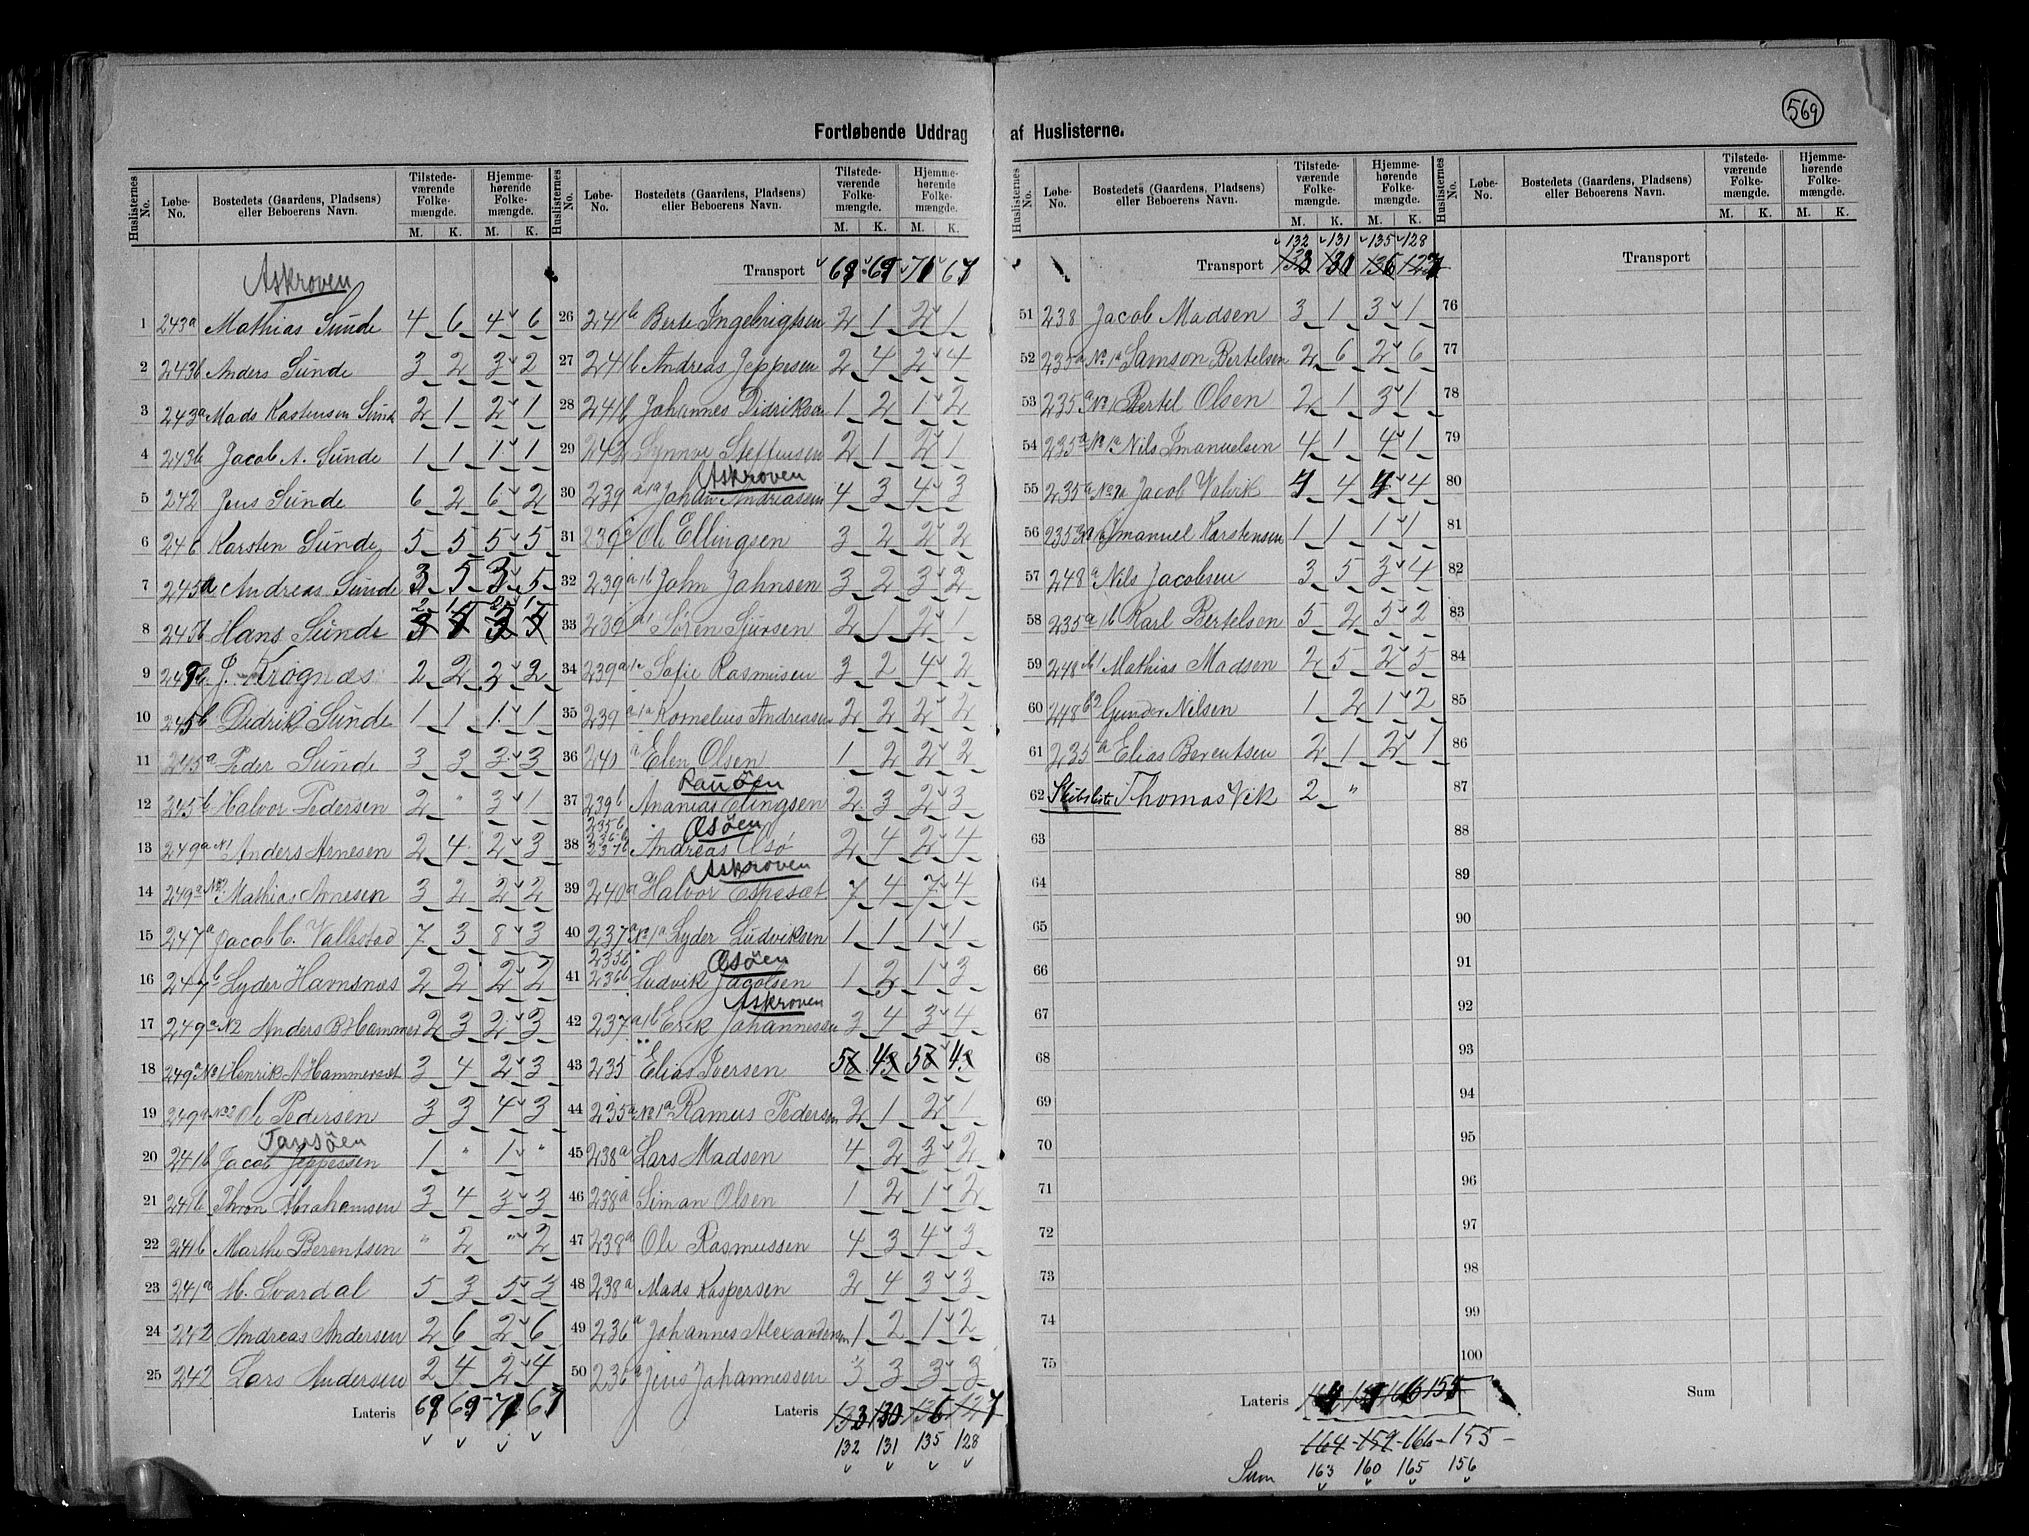 569
Fortløbende Uddrag af Huslisterne.
Huslisternes No. Løbe-No. Bostedets (Gaardens, Pladsens) eller Beboerens Navn. Tilstedeværende Folkemængde. M. K. Hjemmehørende Folkemængde. M. K.
Askroven
1 243a Mathias Sunde 4 6 4 6
2 243b Anders Sunde 3 2 3 2
3 243a Mads Karstensen Sunde 2 1 2 1
4 243b Jacob A. Sunde 1 1 1 1
5 242 Jens Sunde 6 2 6 2
6 246 Karsten Sunde 5 5 5 5
7 245a Andreas Sunde 3 5 3 5
8 245b Hans Sunde 2 1 2 1
9 J. Krognæs 2 2 3 2
10 245b Didrik Sunde 1 1 1 1
11 245a Peder Sunde 3 3 3 3
12 245b Halvor Pedersen 2 " 3 1
13 249a N1 Anders Arnesen 2 4 2 3
14 249a N2 Mathias Arnesen 3 2 2 2
15 247a Jacob C. Vallestad 7 3 8 3
16 247b Lyder Havnsnæs 2 2 2 2
17 249a N2 Anders B Hammer 2 3 2 3
18 249a No1 Henrik A Hammerset 3 4 2 3
19 249a No2 Ole Pedersen 3 3 4 3
Tansøen
20 241b Jacob Jeppessen 1 " 1 "
21 241b Thron Abrahamsen 3 4 3 3
22 241b Marthe Berentsen " 2 " 2
23 241a M. Svardal 5 3 5 3
24 242 Andreas Andersen 2 6 2 6
25 242 Lars Andersen 2 4 2 4
Lateris 69 71 67
Transport 69 71 67
26 241b Berte Ingebrigtsen 2 1 2 1
27 241b Andreas Jeppesen 2 4 2 4
28 241b Johannes Didriksen 1 2 1 2
29 242 Synnve Steffensen 2 1 2 1
Askroven
30 239 a1a Johan Andreasen 4 3 4 3
31 239a Ole Ellingsen 3 2 2 2
32 239a1b John Jahnsen 3 2 3 2
33 239 a1 Søren Sjursen 2 1 2 1
34 239a1c Sofie Rasmusen 3 2 4 2
35 239 a1a Kornelius Andreasen 2 2 2 2
36 240 a Elen Olsen 1 2 2 2
Rausøen
37 239b Ananias Elingsen 2 3 2 3
Øsøen
38 235b 236b 237b Andreas Osø 2 4 2 4
Askroven
39 240a Halvor Espeset 7 4 7 4
40 237a No1a Lyder Ludviksen 1 1 1 1
Øsøen
41 235b 236b Ludvik Jacobsen 1 3 1 3
Askroven
42 237a1b Erik Johannessen 3 4 3 4
43 235 Elias Iversen 5 4 5 4
44 235a No1a Ramus Pedersen 2 1 2 1
45 238a Lars Madsen 4 2 3 2
46 238a Siman Olsen 1 2 1 2
47 238a Ole Rasmussen 4 3 4 3
48 238a Mads Kaspersen 2 4 3 3
49 236a Johannes Alexandersen 1 2 1 2
50 236a Jens Johannessen 3 3 3 3
Lateris 133 130 136 127
132 131 135 128
Huslisternes No. Løbe-No. Bostedets (Gaardens, Pladsens) eller Beboerens Navn. Tilstedeværende Folkemængde. M. K. Hjemmehørende Folkemængde. M. K.
132 131 135 128
Transport 133 130 136 127
51 238 Jacob Madsen 3 1 3 1
52 235a No1a Samson Bertelsen 2 6 2 6
53 235a No1 Bertel Olsen 2 1 3 1
54 235a No1a Nils Imanuelsen 4 1 4 1
55 235a No2a Jacob Valvik 4 4
56 235 Imanuel Karstensen 1 1 1 1
57 248a Nils Jacobsen 3 5 3 4
58 235a1b Karl Bertelsen 5 2 5 2
59 248b1 Mathias Madsen 2 5 2 5
60 248b2 Gunder Nilsen 1 2 1 2
61 235a Elias Berentsen 2 1 2 1
62 Skibsliste Thomas Vik 2 "
63
64
65
66
67
68
69
70
71
72
73
74
75
Lateris
164 159 166 155
Sum 163 160 165 156
Transport
76
77
78
79
80
81
82
83
84
85
86
87
88
89
90
91
92
93
94
95
96
97
98
99
100
Sum